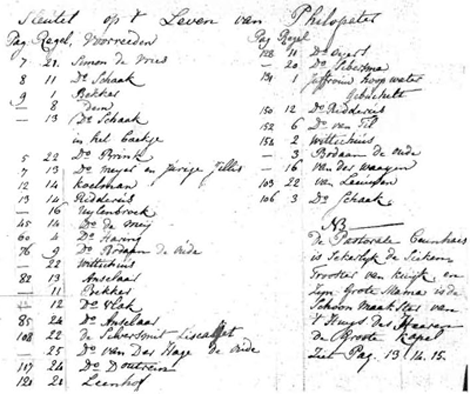 Sleutel op 't Leven van Philopater
Pag Regel, Voorreeden
7 21. Simon de Vries
8 11 Ds Schaak
9 1 Bekker
— 8 Dem
— 13 Ds Schaak
in het boekje
5 22 Ds Brink
7 13 Ds Meyer en Jurige Tillis
12 14 Koelman
13 14 Ridderus
— 16 Uylenbroek
45 14 Ds de Meij
60 4 Ds Haring
76 9 Ds Bodaan de oude
— 22 Wittichius
82 13 Anslaar
— 11 Bekker
— 12 Ds Vlak
85 24 Ds Anslaar
108 22 de Silversmit
— 25 Ds van Der Hage de oude
117 24 Ds D'outrein
120 20 Leenhof
Pag Regel
128 11 Ds
— 20 Ds
134 1 Juffrouw hoop water
gebuchelt
150 12 Ds Ridderus
152 6 Ds van Til
154 2 Wittichius
— 3 Bodaan de oude
— 16 van der Waayen
103 22 van Leeuwen
106 3 Ds Schaak
NB
De Pastorale
is Sekerlyk de Sieken
trooster van Kuijk, en
Zyn Grote Mama is de
Schoonmaakster van
't Huys des Heeren
de Groote Kapel
Ziet Pag. 13 14. 15.